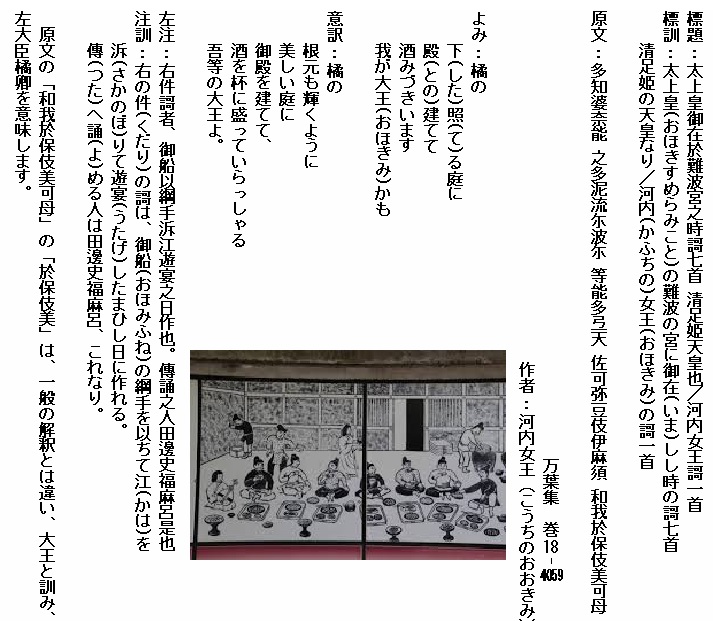 標題：太上皇御在於難波宮之時謌七首 清足姫天皇也／河内女王謌一首
標訓：太上皇(おほきすめらみこと)の難波の宮に御在(いま)しし時の謌七首
清足姫の天皇なり／河内(かふちの)女王(おほきみ)の謌一首
原文：多知婆奈能 之多泥流尓波尓 等能多弖天 佐可弥豆伎伊麻須 和我於保伎美可母
万葉集 巻18－4059
作者：河内女王(こうちのおおきみ)
よみ：橘の
下(した)照(て)る庭に
殿(との)建てて
酒みづきいます
我が大王(おほきみ)かも
意訳：橘の
根元も輝くように
美しい庭に
御殿を建てて、
酒を杯に盛っていらっしゃる
吾等の大王よ。
左注：右件謌者、御船以綱手泝江遊宴之日作也。傳誦之人田邊史福麻呂是也
注訓：右の件(くだり)の謌は、御船(おほみふね)の綱手を以ちて江(かは)を
泝(さかのぼ)りて遊宴(うたげ)したまひし日に作れる。
傳(つた)へ誦(よ)める人は田邊史福麻呂、これなり。
原文の「和我於保伎美可母」の「於保伎美」は、一般の解釈とは違い、大王と訓み、
左大臣橘卿を意味します。